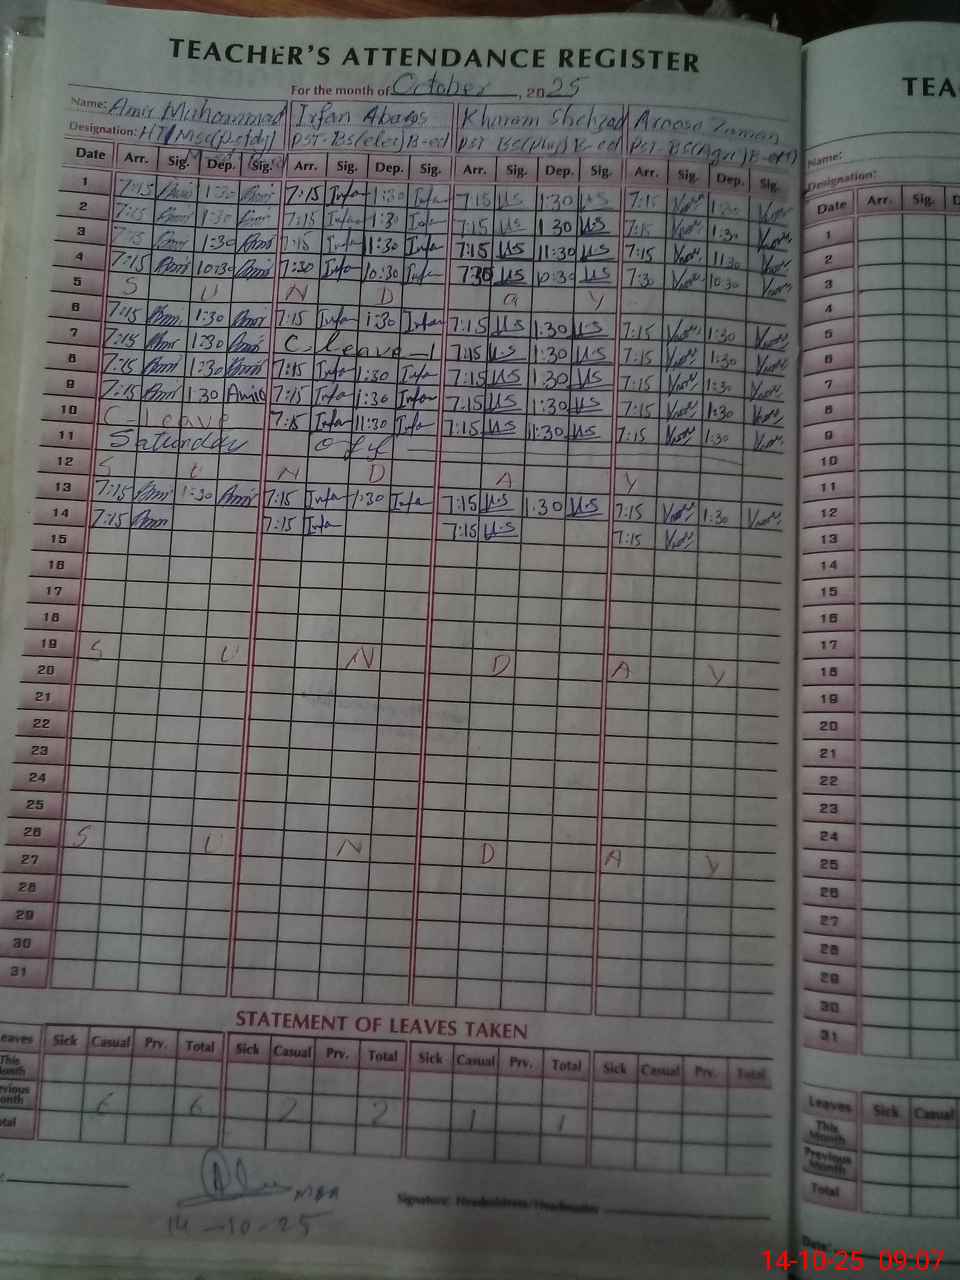 TEACHER'S ATTENDANCE REGISTER
For the month of October, 2025
Name: Amir Muhammad Irfan Abaas Khuram Shehzad Aroosa Zaman
Designation: HT/MSc PST-BS(elec) B-ed PST BS(phy) B-ed PST-BS(Agri)
Date Arr. Sig. Dep. Sig. Arr. Sig. Dep. Sig. Arr. Sig. Dep. Sig. Arr. Sig. Dep. Sig.
1 7:15 Amir 1:30 Amir 7:15 Irfan 1:30 Irfan 7:15 U.S 1:30 U.S 7:15 1:30
2 7:15 Amir 1:30 Amir 7:15 Irfan 1:30 Irfan 7:15 U.S 1 30 U.S 7:15 1:30
3 7:15 Amir 1:30 Amir 7:15 Irfan 11:30 Irfan 7:15 U.S 11:30 U.S 7:15 11:30
4 7:15 Amir 10:30 Amir 7:30 Irfan 10:30 Irfan 7:30 U.S 10:30 U.S 7:30 10:30
5 S U N D a Y
6 7:15 Amir 1:30 Amir 7:15 Irfan 1:30 Irfan 7:15 U.S 1:30 U.S 7:15 1:30
7 7:15 Amir 1:30 Amir C leave-1 7:15 U.S 1:30 U.S 7:15 1:30
8 7:15 Amir 1:30 Amir 7:15 Irfan 1:30 Irfan 7:15 U.S 1:30 U.S 7:15 1:30
9 7:15 Amir 1 30 Amir 7:15 Irfan 1:30 Irfan 7:15 U.S 1:30 U.S 7:15 1:30
10 C leave 7:15 Irfan 11:30 Irfan 7:15 U.S 11:30 U.S 7:15 1:30
11 Saturday off
12 S U N D A Y
13 7:15 Amir 1:30 Amir 7:15 Irfan 1:30 Irfan 7:15 U.S 1:30 U.S 7:15 1:30
14 7:15 Amir 7:15 Irfan 7:15 U.S 7:15
15
16
17
18
19 S U N D A Y
20
21
22
23
24
25
26 S U N D A Y
27
28
29
30
31
STATEMENT OF LEAVES TAKEN
eaves Sick Casual Prv. Total Sick Casual Prv. Total Sick Casual Prv. Total Sick Casual Prv. Total
This
onth
vious
onth 6 6 2 2 1 1
tal
14-10-25
Signature: Headmistress/Headmaster
TEA
Name:
Designation:
Date Arr. Sig. D
1
2
3
4
5
6
7
8
9
10
11
12
13
14
15
16
17
18
19
20
21
22
23
24
25
26
27
28
29
30
31
Leaves Sick Casual
This
Month
Previous
Month
Total
Date:
14-10-25 09:07